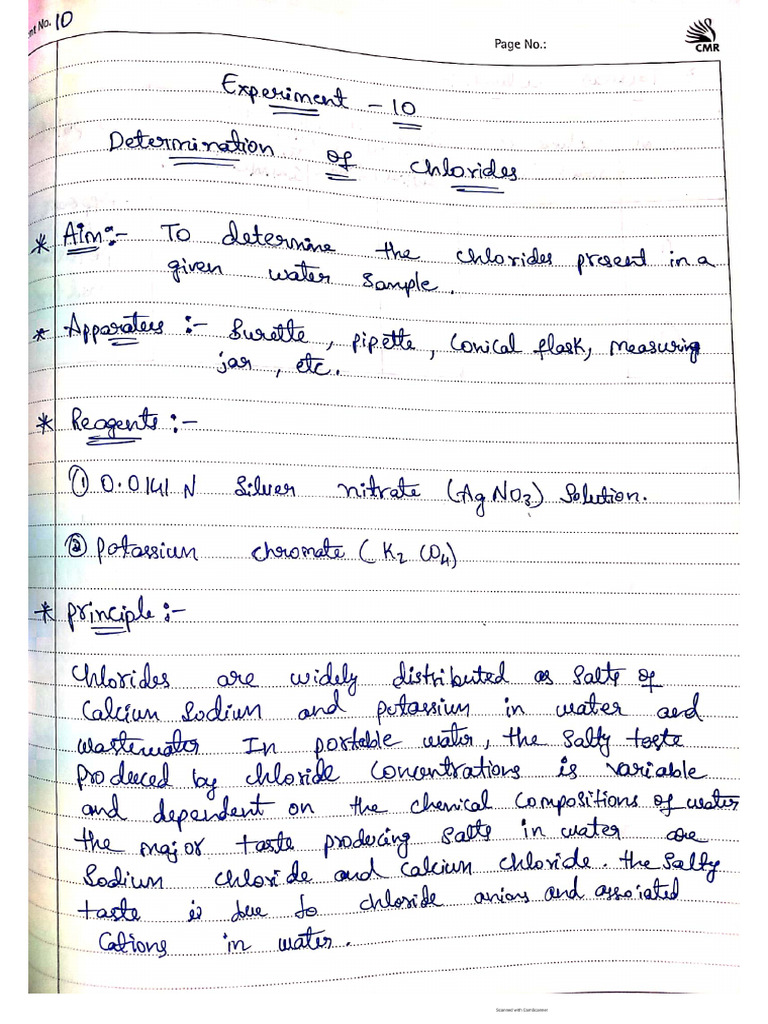 nt No. 10
Page No.:
CMR
Experiment - 10
Determination of Chlorides
* Aim:- To determine the chlorides present in a
given water sample.
* Apparatus :- Burette, pipette, Conical flask, measuring
jar, etc.
* Reagents :-
① 0.0141 N Silver nitrate (AgNO3) Solution.
② Potassium chromate (K2 CO4)
* Principle:-
Chlorides are widely distributed as Salts of
Calcium Sodium and potassium in water and
wastewater In portable water, the salty taste
produced by chloride Concentrations is variable
and dependent on the chemical Compositions of water
the major taste producing Salts in water are
Sodium chloride and Calcium chloride. the Salty
taste is due to chloride anions and assoiated
Cations in water.
Scanned with CamScanner